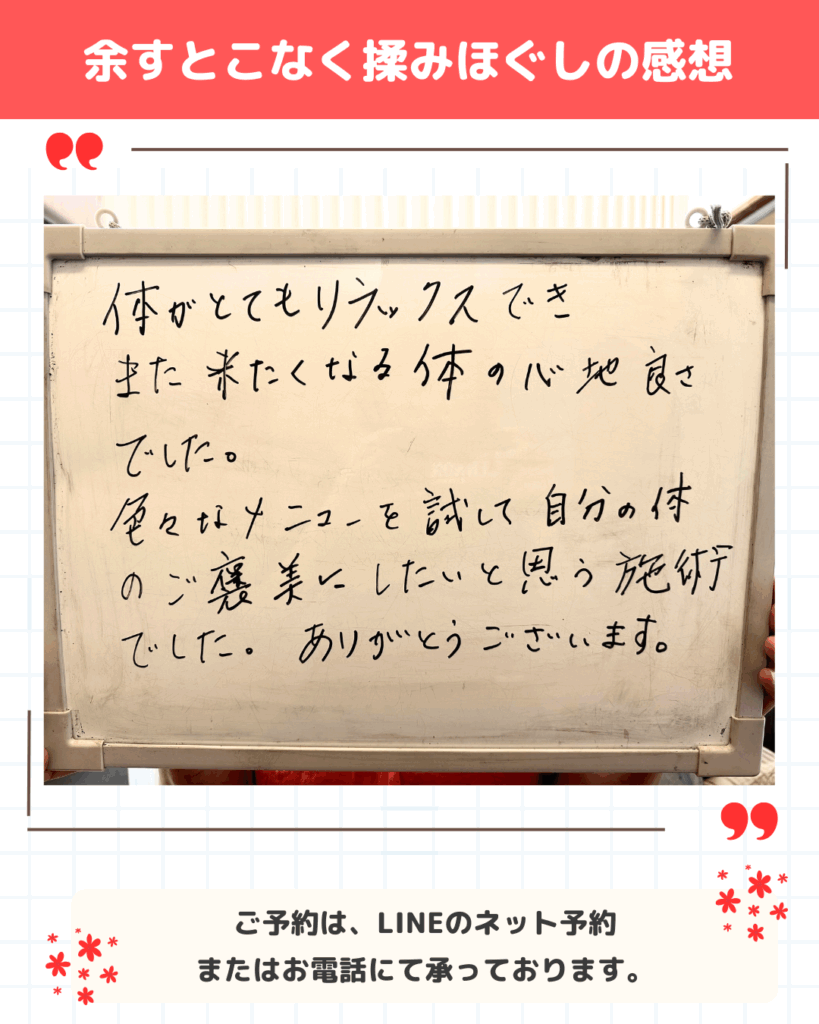 余すとこなく揉みほぐしの感想
体がとてもリラックスでき
また来たくなる体の心地良さ
でした。
色々なメニューを試して自分の体
のご褒美にしたいと思う施術
でした。ありがとうございます。
ご予約は、LINEのネット予約
またはお電話にて承っております。